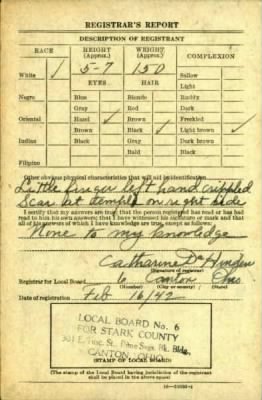 REGISTRAR'S REPORT
DESCRIPTION OF REGISTRANT
RACE HEIGHT (Approx.) WEIGHT (Approx.) COMPLEXION
White ✓ 5-7 150 Sallow
EYES HAIR Light
Negro Blue Blonde Ruddy
Gray Red Dark
Oriental Hazel ✓ Brown Freckled
Brown Black ✓ Light brown ✓
Indian Black Gray Dark brown
Bald Black
Filipino
Other obvious physical characteristics that will aid in identification
Little finger left hand crippled
Scar at temple on right side
I certify that my answers are true; that the person registered has read or has had
read to him his own answers; that I have witnessed his signature or mark and that
all of his answers of which I have knowledge are true, except as follows:
None to my knowledge
Catharine
(Signature of registrar)
Registrar for Local Board 6 Canton Ohio
(Number) (City or county) (State)
Date of registration Feb 16/42
LOCAL BOARD No. 6
FOR STARK COUNTY
CANTON, OHIO
(STAMP OF LOCAL BOARD)
(The stamp of the Local Board having jurisdiction of the registrant
shall be placed in the above space.)